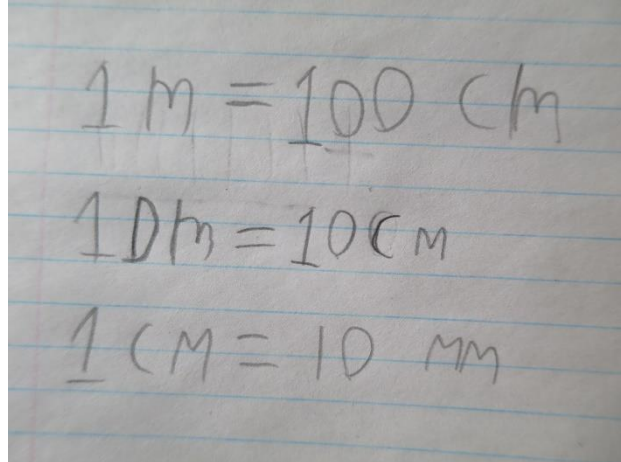 1 m = 100 cm
1 Dm = 10 cm
1 cm = 10 mm